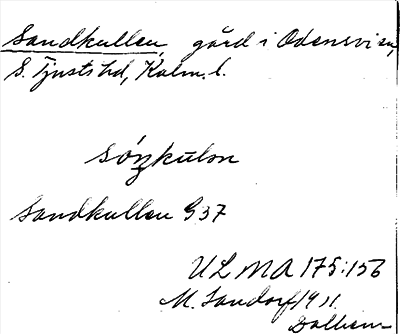 Sandkullen, gård i Odensvi sn,
S. Tjusts hd, Kalm. l.
sónkulən
Sandkullen G 37
ULMA 175:156
M. Sandorf 1911.
Dalhem